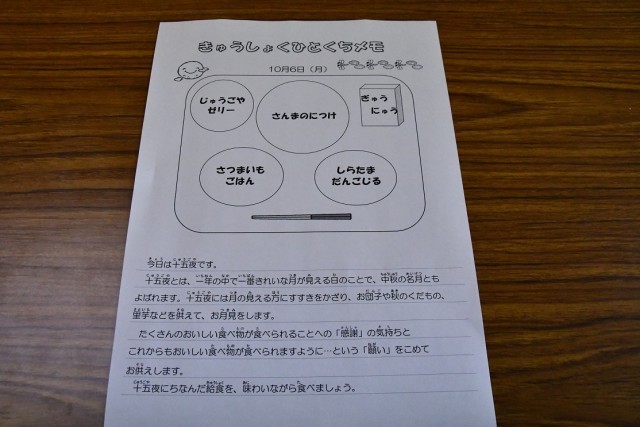 きゅうしょくひとくちメモ
10月6日（月）
じゅうごや
ゼリー
さんまのにつけ
ぎゅう
にゅう
さつまいも
ごはん
しらたま
だんごじる
今日は十五夜です。
十五夜とは、一年の中で一番きれいな月が見える日のことで、中秋の名月とも
よばれます。十五夜には月の見える方にすすきをかざり、お団子や秋のくだもの、
里芋などを供えて、お月見をします。
たくさんのおいしい食べ物が食べられることへの「感謝」の気持ちと
これからもおいしい食べ物が食べられますように…という「願い」をこめて
お供えします。
十五夜にちなんだ給食を、味わいながら食べましょう。